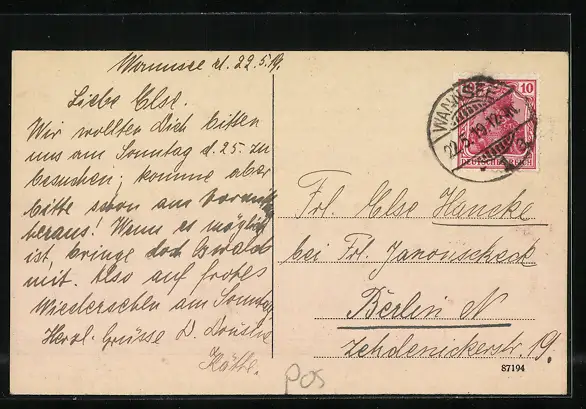 Wannsee d. 22.5.19.
Liebe Else.
Wir wollten Dich bitten
uns am Sonntag d. 25 zu
besuchen; komme aber
bitte schon am Vormit
heraus! Wenn es möglich
ist, bringe doch Oswald
mit. Also auf frohes
Wiedersehen am Sonntag
Herzl. Grüsse D. Cousine
Käthe.
10
WANNSEE
22.5.19.12
DEUTSCHES REICH
Frl. Else Hancke
bei Fr. Janouscheck
Berlin N
Zehdenickerstr. 19.
87194
pos